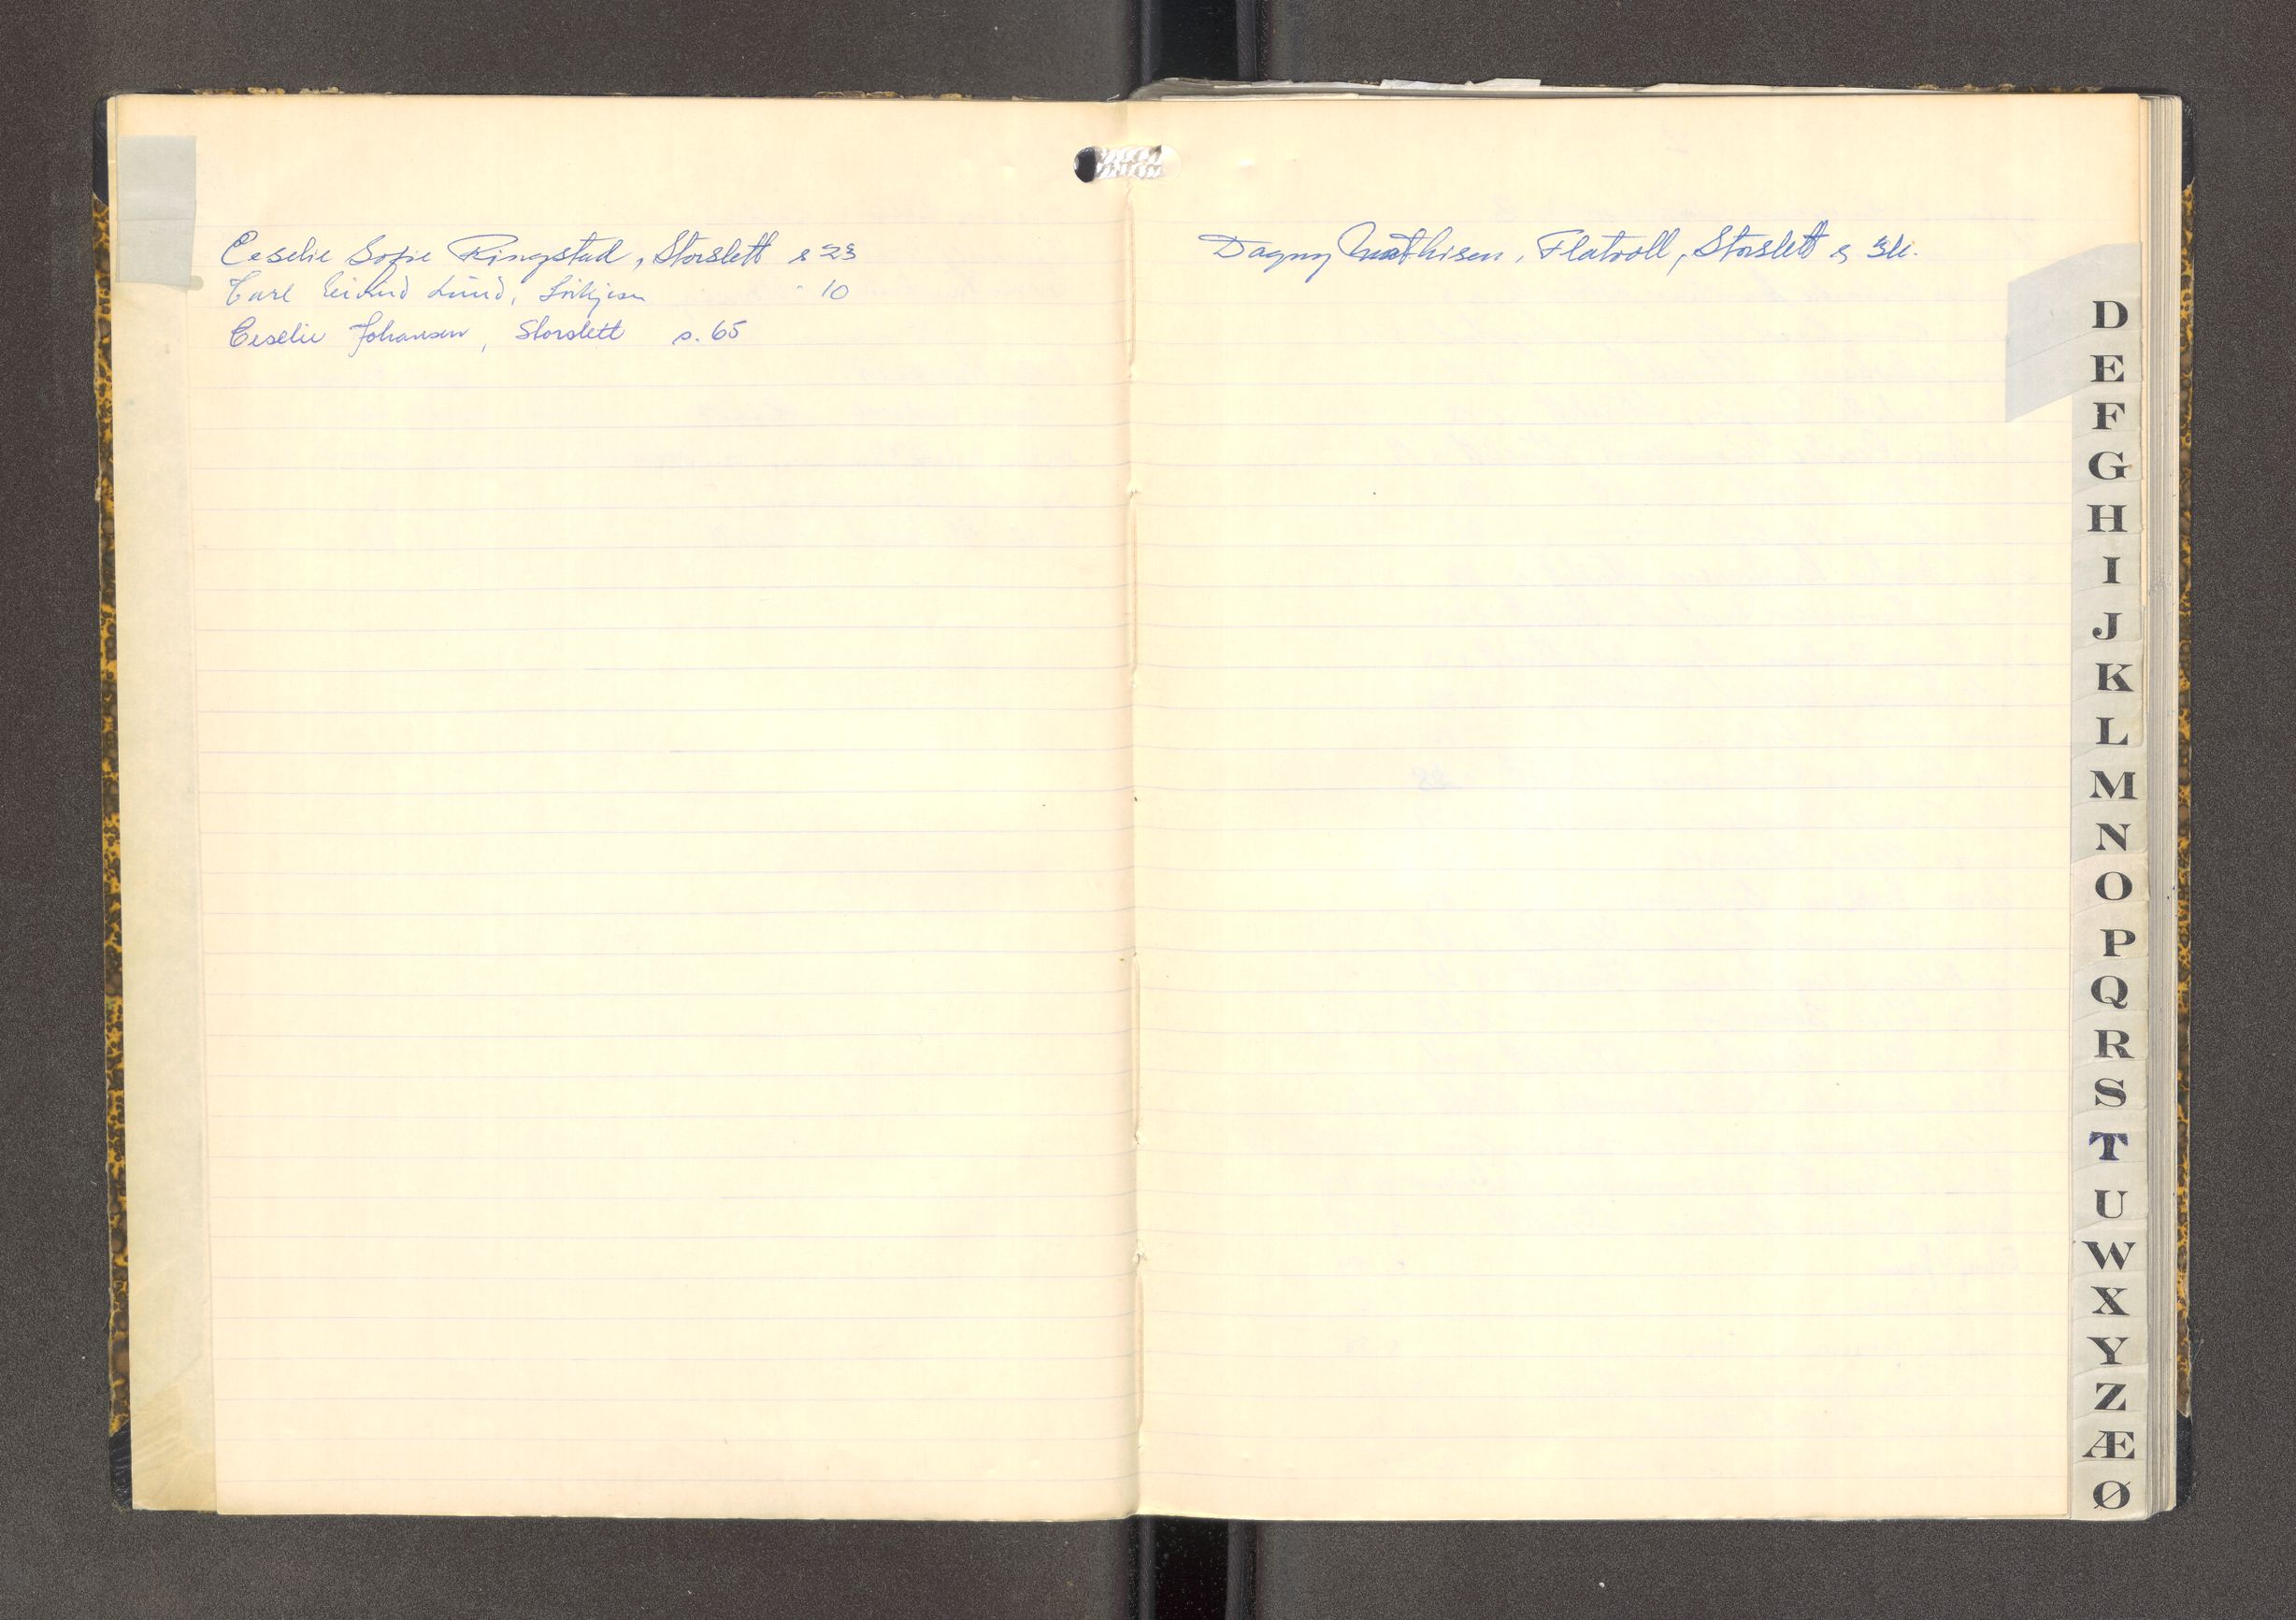 Ceselie Sofie Ringstad, Storslett s 23
Carl Eivind Lund, Sörkjosen " 10
Ceselie Johansen, Storslett s. 65
Dagny Mathisen, Flatvoll, Storslett s 34.
D
E
F
G
H
I
J
K
L
M
N
O
P
Q
R
S
T
U
W
X
Y
Z
Æ
Ø